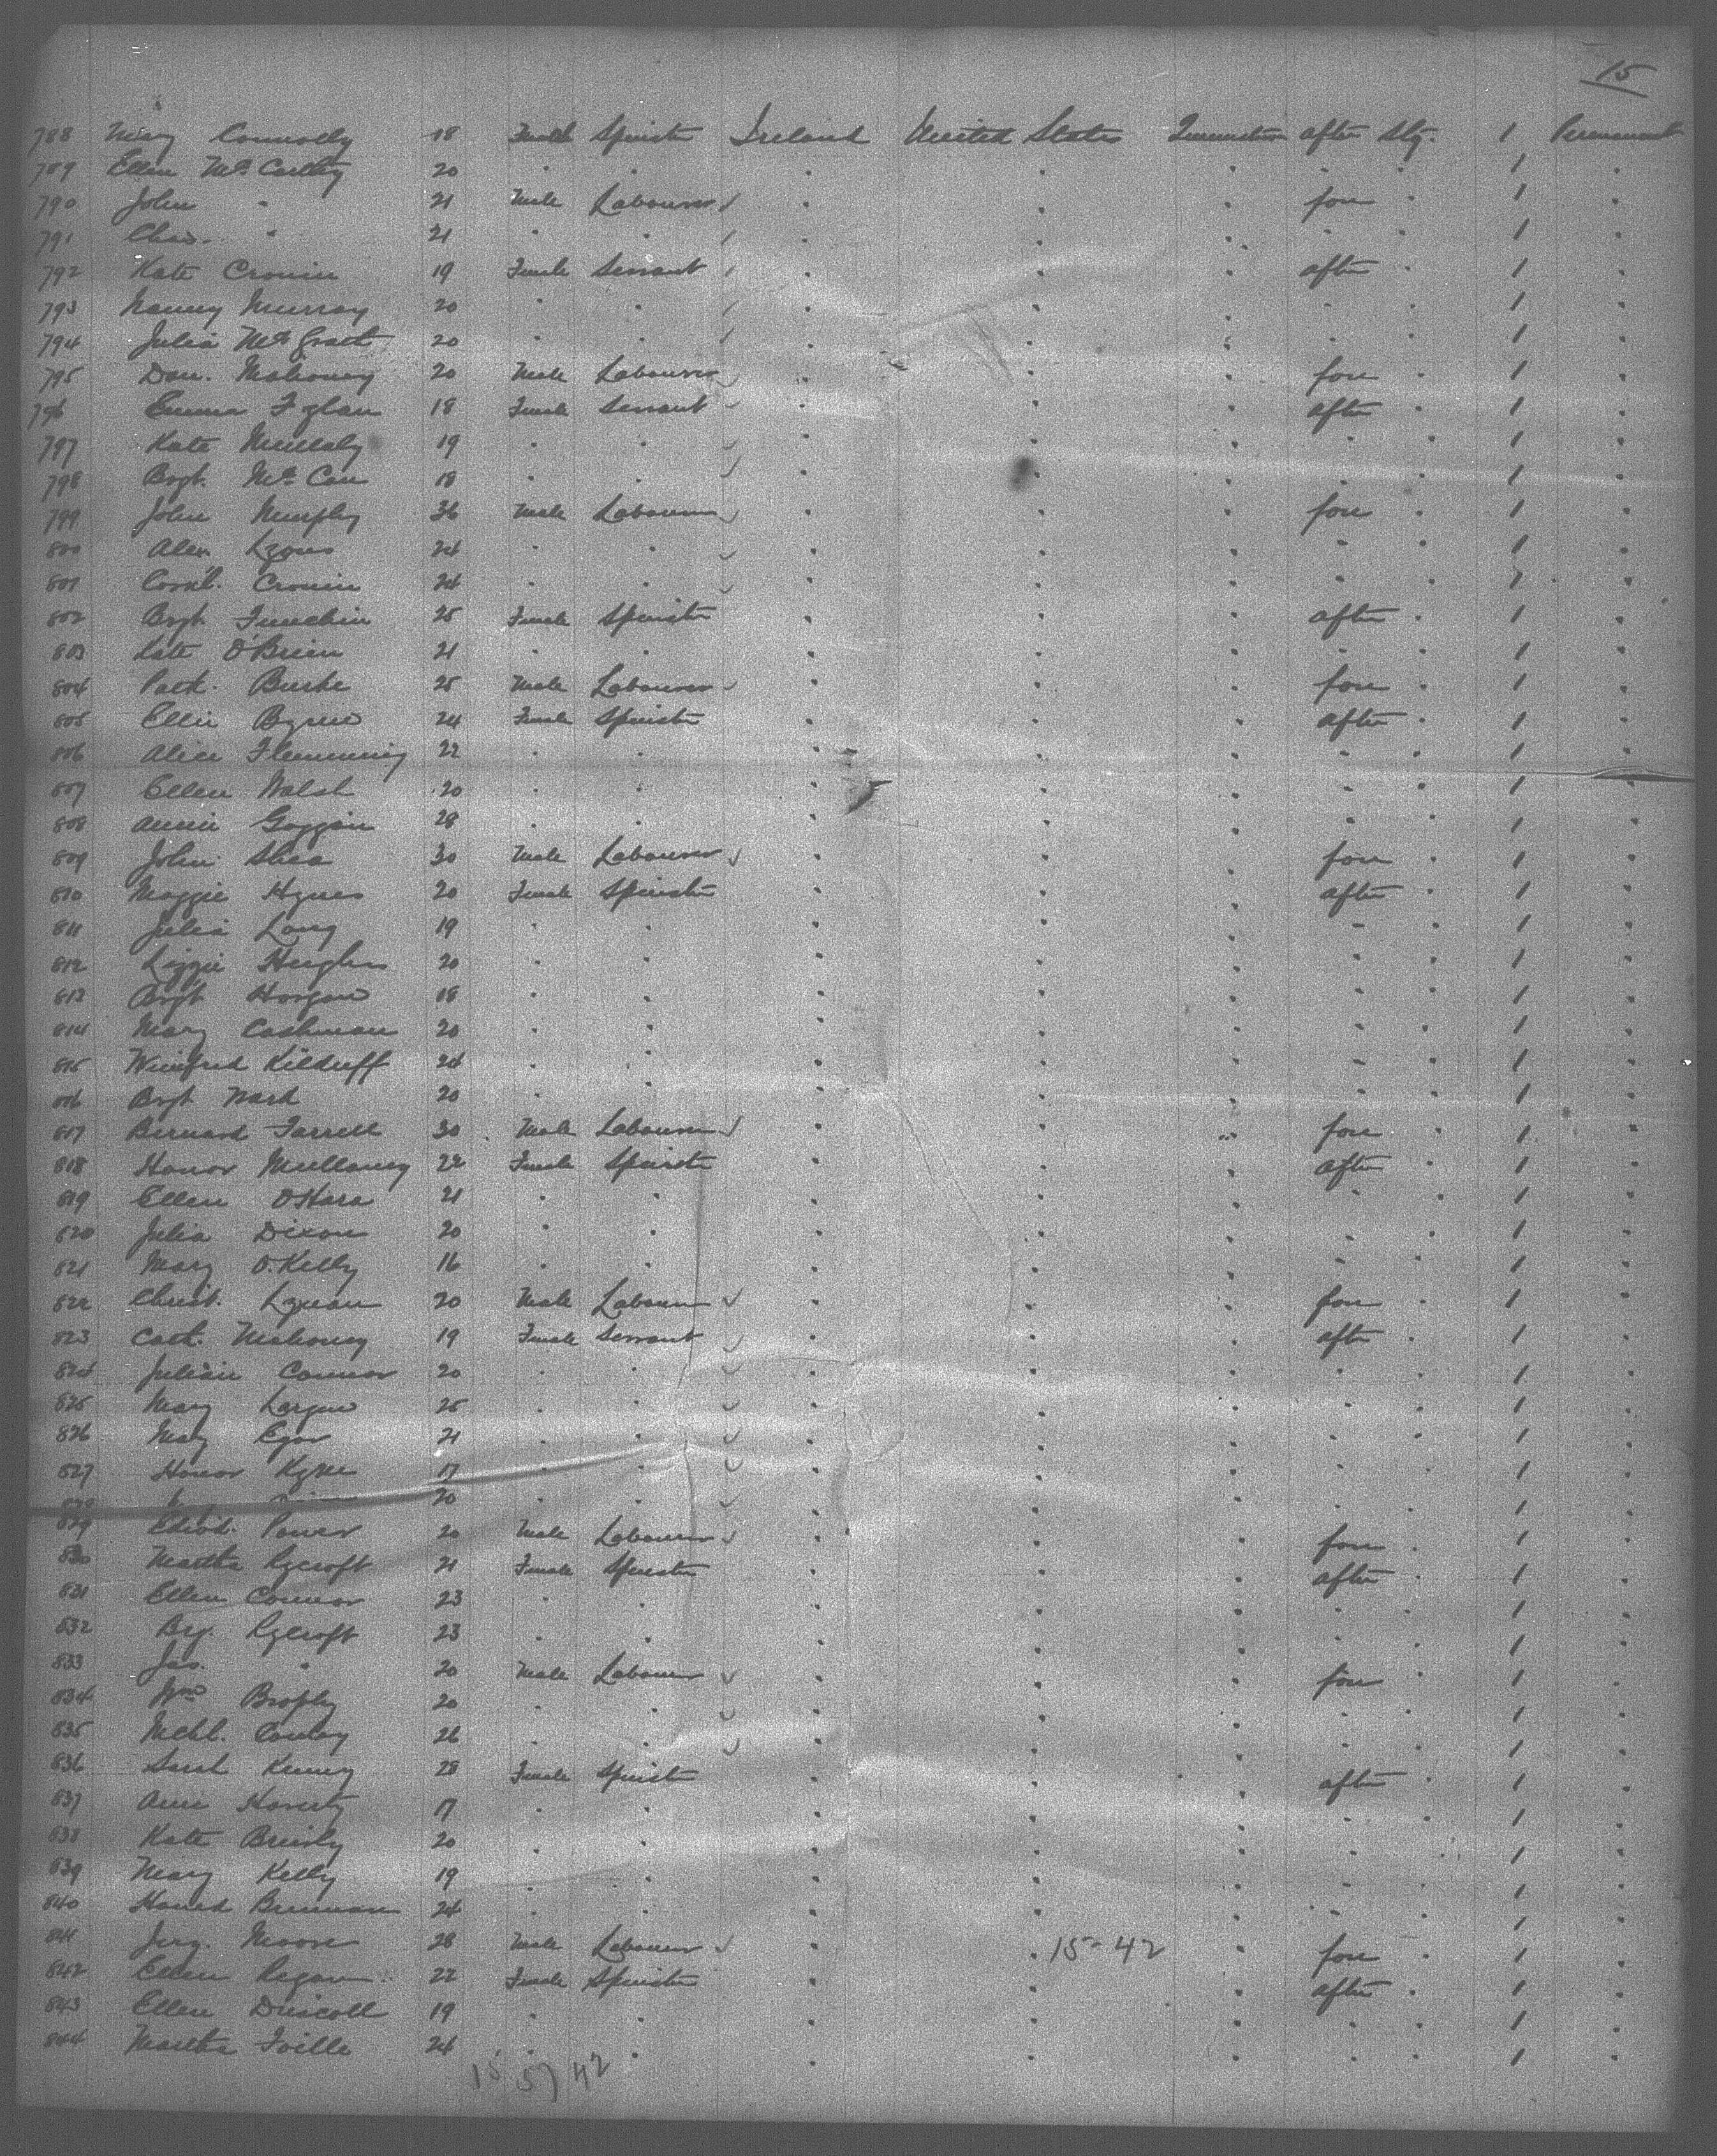 15
788 Mary Connolly 18 Female Spinster Ireland United States Queenstown after Stg. 1 Permanent
789 Ellen McCarthy 20 " " " " " " " 1 "
790 John " 21 Male Labourer " " " fore " 1 "
791 Chas. " 21 " " " " " " " 1 "
792 Kate Cronin 19 Female Servant " " " after " 1 "
793 Nanny Murray 20 " " " " " " " 1 "
794 Julia McGrath 20 " " " " " " " 1 "
795 Dan. Mahoney 20 Male Labourer " " " fore " 1 "
796 Emma 18 Female Servant " " " after " 1 "
797 Kate Mullaly 19 " " " " " " " 1 "
798 Brgt. McCan 18 " " " " " " " 1 "
799 John Murphy 36 Male Labourer " " " fore " 1 "
800 Alex. Lyons 24 " " " " " " " 1 "
801 Cornl. Cronin 24 " " " " " " " 1 "
802 Brgt 25 Female Spinster " " " after " 1 "
803 Kate O'Brien 21 " " " " " " " 1 "
804 Patk. Burke 25 Male Labourer " " " fore " 1 "
805 Ellie Byrne 24 Female Spinster " " " after " 1 "
806 Alice Flemming 22 " " " " " " " 1 "
807 Ellen Walsh 20 " " " " " " " 1 "
808 Annie Goggin 28 " " " " " " " 1 "
809 John Shea 30 Male Labourer " " " fore " 1 "
810 Maggie Hynes 20 Female Spinster " " " after " 1 "
811 Julia Long 19 " " " " " " " 1 "
812 Lizzie Hughes 20 " " " " " " " 1 "
813 Brgt Horgan 18 " " " " " " " 1 "
814 Mary Cashman 20 " " " " " " " 1 "
815 Winifred Kilduff 24 " " " " " " " 1 "
816 Brgt Nash 20 " " " " " " " 1 "
817 Bernard Farrell 30 Male Labourer " " " fore " 1 "
818 Honor Mullaney 22 Female Spinster " " " after " 1 "
819 Ellen O'Hara 21 " " " " " " " 1 "
820 Julia Dixon 20 " " " " " " " 1 "
821 Mary O.Kelly 16 " " " " " " " 1 "
822 Christ. Lynan 20 Male Labourer " " " fore " 1 "
823 Cath. Mahoney 19 Female Servant " " " after " 1 "
824 Connor 20 " " " " " " " 1 "
825 Mary 25 " " " " " " " 1 "
826 Mary Egan 21 " " " " " " " 1 "
827 Honor Kyne 17 " " " " " " " 1 "
828 20 " " " " " " " 1 "
829 Edwd. Power 20 Male Labourer " " " fore " 1 "
830 Martha Rycroft 21 Female Spinster " " " after " 1 "
831 Ellen Connor 23 " " " " " " " 1 "
832 Rycroft 23 " " " " " " " 1 "
833 Jas. " 20 Male Labourer " " " fore " 1 "
834 Wm Brophy 20 " " " " " " " 1 "
835 Michl. Conboy 26 " " " " " " " 1 "
836 Sarah Kenny 28 Female Spinster " " " after " 1 "
837 Ann 17 " " " " " " " 1 "
838 Kate 20 " " " " " " " 1 "
839 Mary Kelly 19 " " " " " " " 1 "
840 Brennan 24 " " " " " " " 1 "
841 Jerry. Moore 28 Male Labourer " " 15-42 " fore " 1 "
842 Ellen Regan 22 Female Spinster " " " after " 1 "
843 Ellen Driscoll 19 " " " " " " " 1 "
844 Martha 24 " " " " " " " 1 "
15 57 42